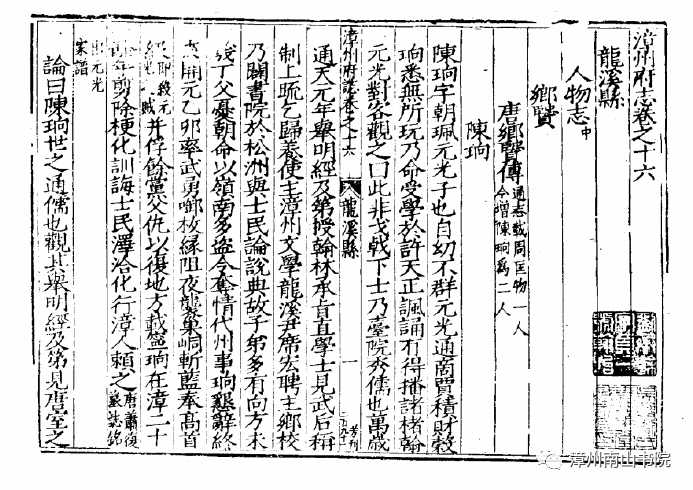 漳州府志卷之十六
龍溪縣
人物志中
鄉賢
唐鄉賢傳通志載周匡物一人
今增陳珦爲二人
陳珦
陳珦字朝珮元光子也自幼不群元光通商賈積財穀
珦悉無所玩乃命受學於許天正諷誦有得播諸楮翰
元光對客觀之曰此非戈戟下士乃臺院秀儒也萬歲
漳州府誌卷之十六 龍溪縣 一
通天元年舉明經及第授翰林承旨直學士見武后稱
制上疏乞歸養使主漳州文學龍溪尹席宏聘主鄉校
乃闢書院於松洲與士民論說典故子弟多有向方未
幾丁父憂朝命以嶺南多盜令奪情代州事珦懇辭終
喪開元乙卯率武勇啣枚緣阻夜襲巢峒斬藍奉高首
級即殺元
光賊 并俘餘黨父仇以復地方載寧珦在漳二十
年剪除梗化訓誨士民澤洽化行漳人賴之唐蕭復
墓誌銘
出元光
家譜
論曰陳珦世之通儒也觀其舉明經及第見唐室之
漳州南山书院